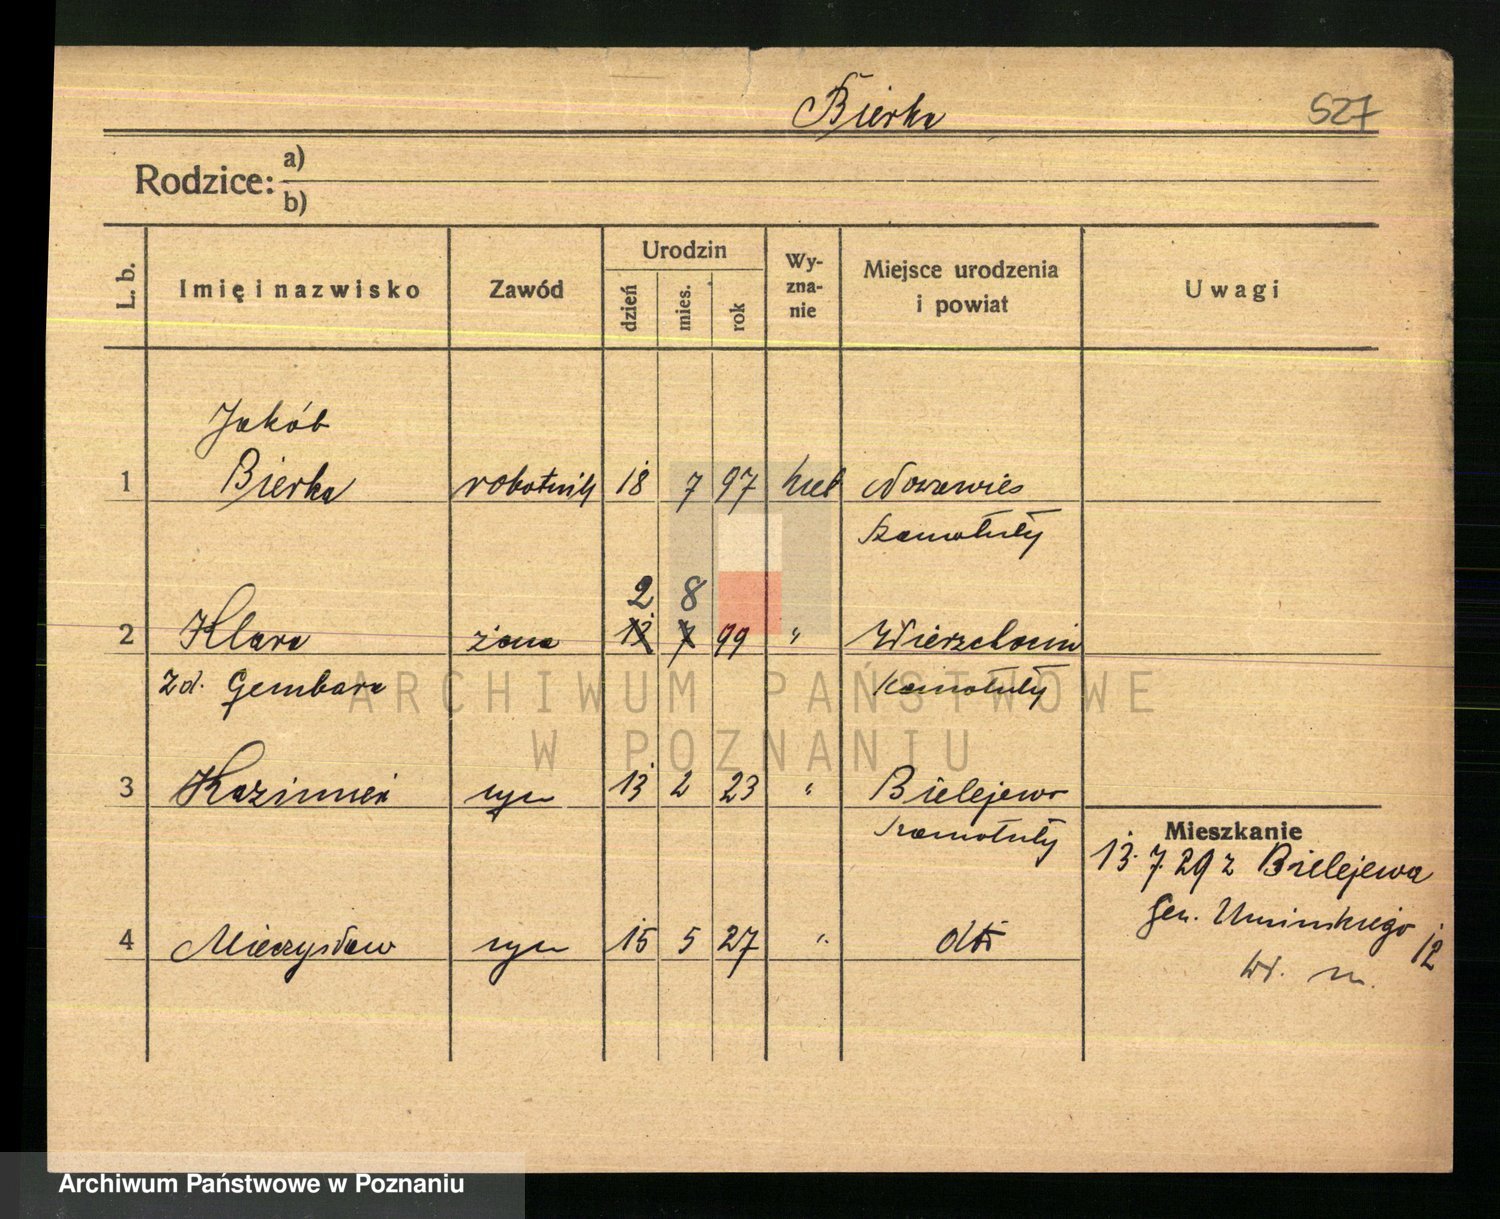 Bierka 527
Rodzice: a)
b)
L. b. Imię i nazwisko Zawód Urodzin dzień mies. rok Wy-zna-nie Miejsce urodzenia i powiat Uwagi
Jakób
1 Bierka robotnik 18 7 97 kat Nowawieś
Szamotuły
2 8
2 Klara żona 13 7 99 " Wierzchocin
zd. Gembara Szamotuły
ARCHIWUM PAŃSTWOWE
W POZNANIU
3 Kazimierz syn 13 2 23 " Bielejewo
Szamotuły
Mieszkanie
13.7.29 z Bielejewa
4 Mieczysław syn 15 5 27 " dtto
Gen. Umińskiego 12
wł. m.
Archiwum Państwowe w Poznaniu